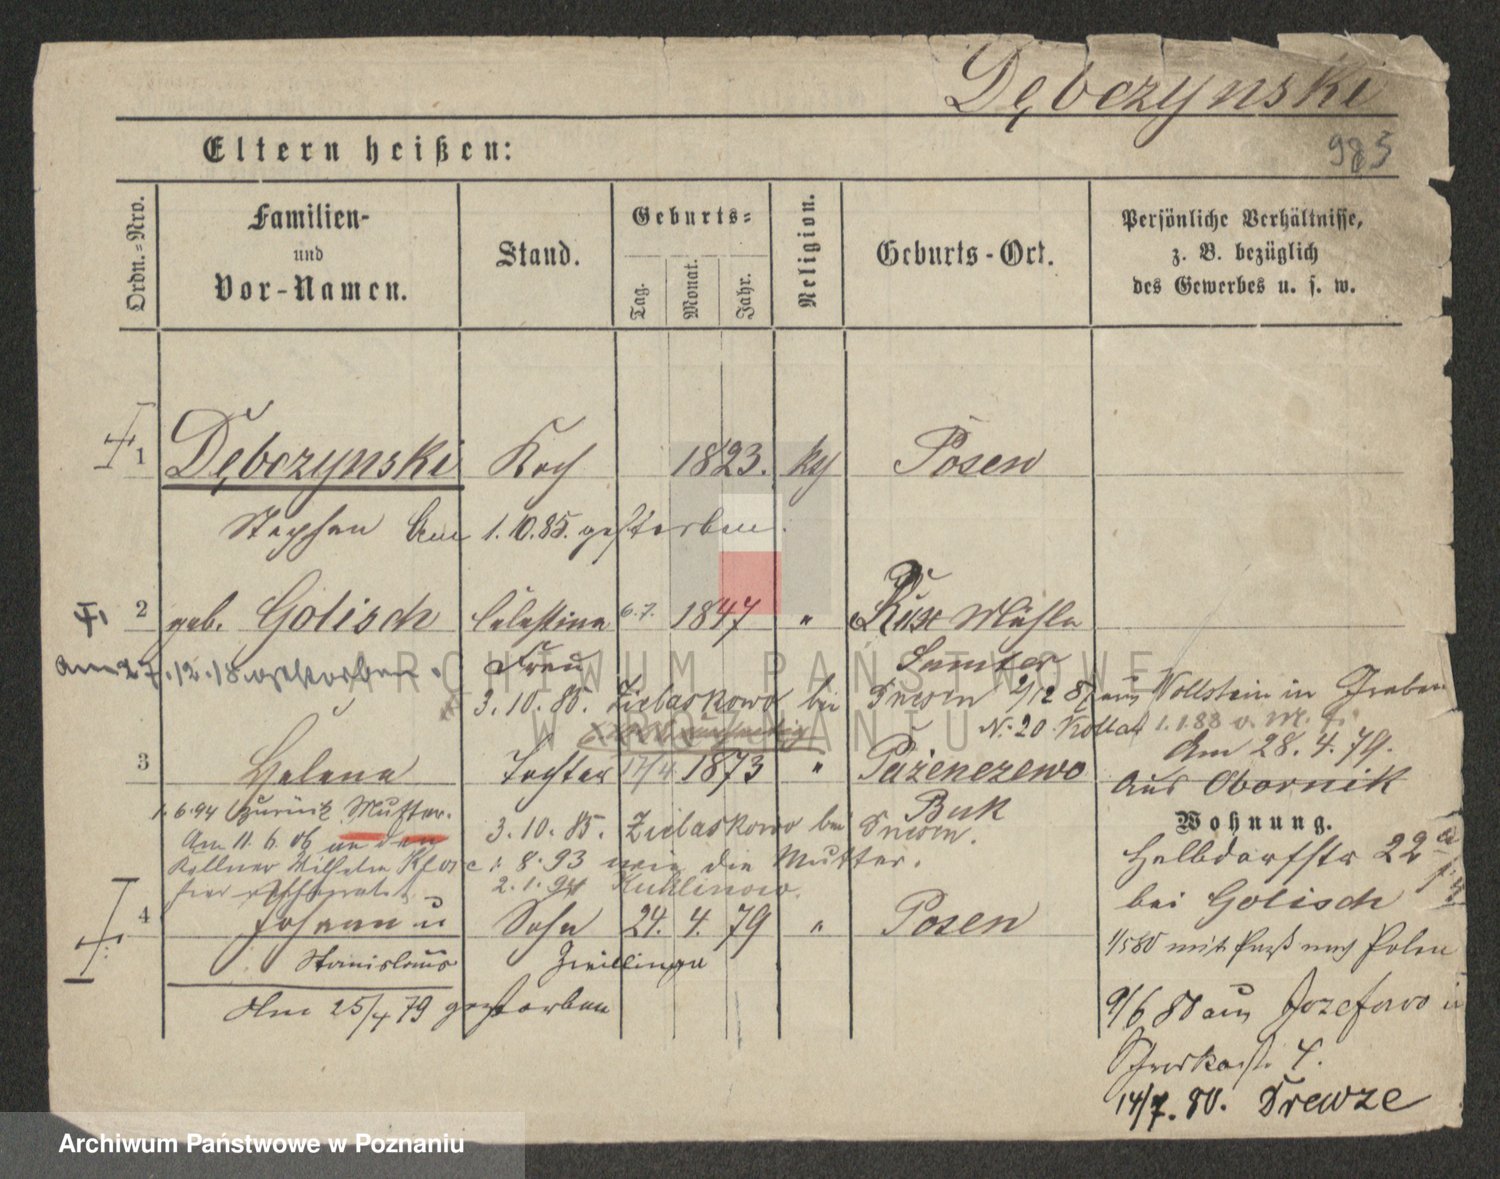 Dębczynski
985
Eltern heißen:
Ordn.-Nro.
Familien-
und
Vor-Namen.
Stand.
Geburts-
Tag.
Monat.
Jahr.
Religion.
Geburts-Ort.
Persönliche Verhältnisse,
z. B. bezüglich
des Gewerbes u. s. w.
1 Dębczynski Koch 1823. kth Posen
Stephan Am 1.10.85. gestorben.
2 geb. Golisch Celestine 6.7. 1847 " Mühle
Frau Samter
am 27.12.18 gestorben.
3.10.85. Zielaskowo bei 2/12 87 aus Wollstein in Graben
No 20 Kollat 1.1.88 v. M.
Am 28.4.79.
3 Helena Tochter 17/4. 1873 " Pażenczewo
Aus Obornik
Buk
1.6.94 zurück Mutter.
3.10.85. Zielaskowo bei
Wohnung.
Am 11.6.06 an den
Halbdorfstr 22a
Kellner Wilhelm
1.8.93 wie die Mutter.
2.1. Kuklinowo.
bei Golisch
4 Johann u Sohn 24. 4. 79 " Posen
Stanislaus Zwillinge
1/5 80 mit Paß nach Polen
Am 25/4 79 gestorben
9/6 80 aus Jozefowo in
4.
14/7. 80. Drewze
ARCHIWUM PAŃSTWOWE
W POZNANIU
Archiwum Państwowe w Poznaniu